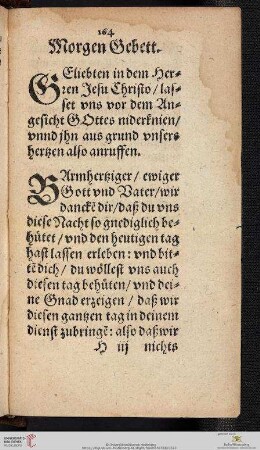 164
Morgen Gebett.
GEliebten in dem Her-
ren Jesu Christo / las-
set vns vor dem An-
gesicht GOttes niderknien /
vnnd jhn aus grund vnsers
hertzen also anruffen.
BArmhertziger / ewiger
Gott vnd Vater / wir
danckē dir / daß du vns
diese Nacht so gnediglich be-
hütet / vnd den heutigen tag
hast lassen erleben: vnd bit-
tē dich / du wöllest vns auch
diesen tag behüten / vnd dei-
ne Gnad erzeigen / daß wir
diesen gantzen tag in deinem
dienst zubringē: also daß wir
H iij nichts